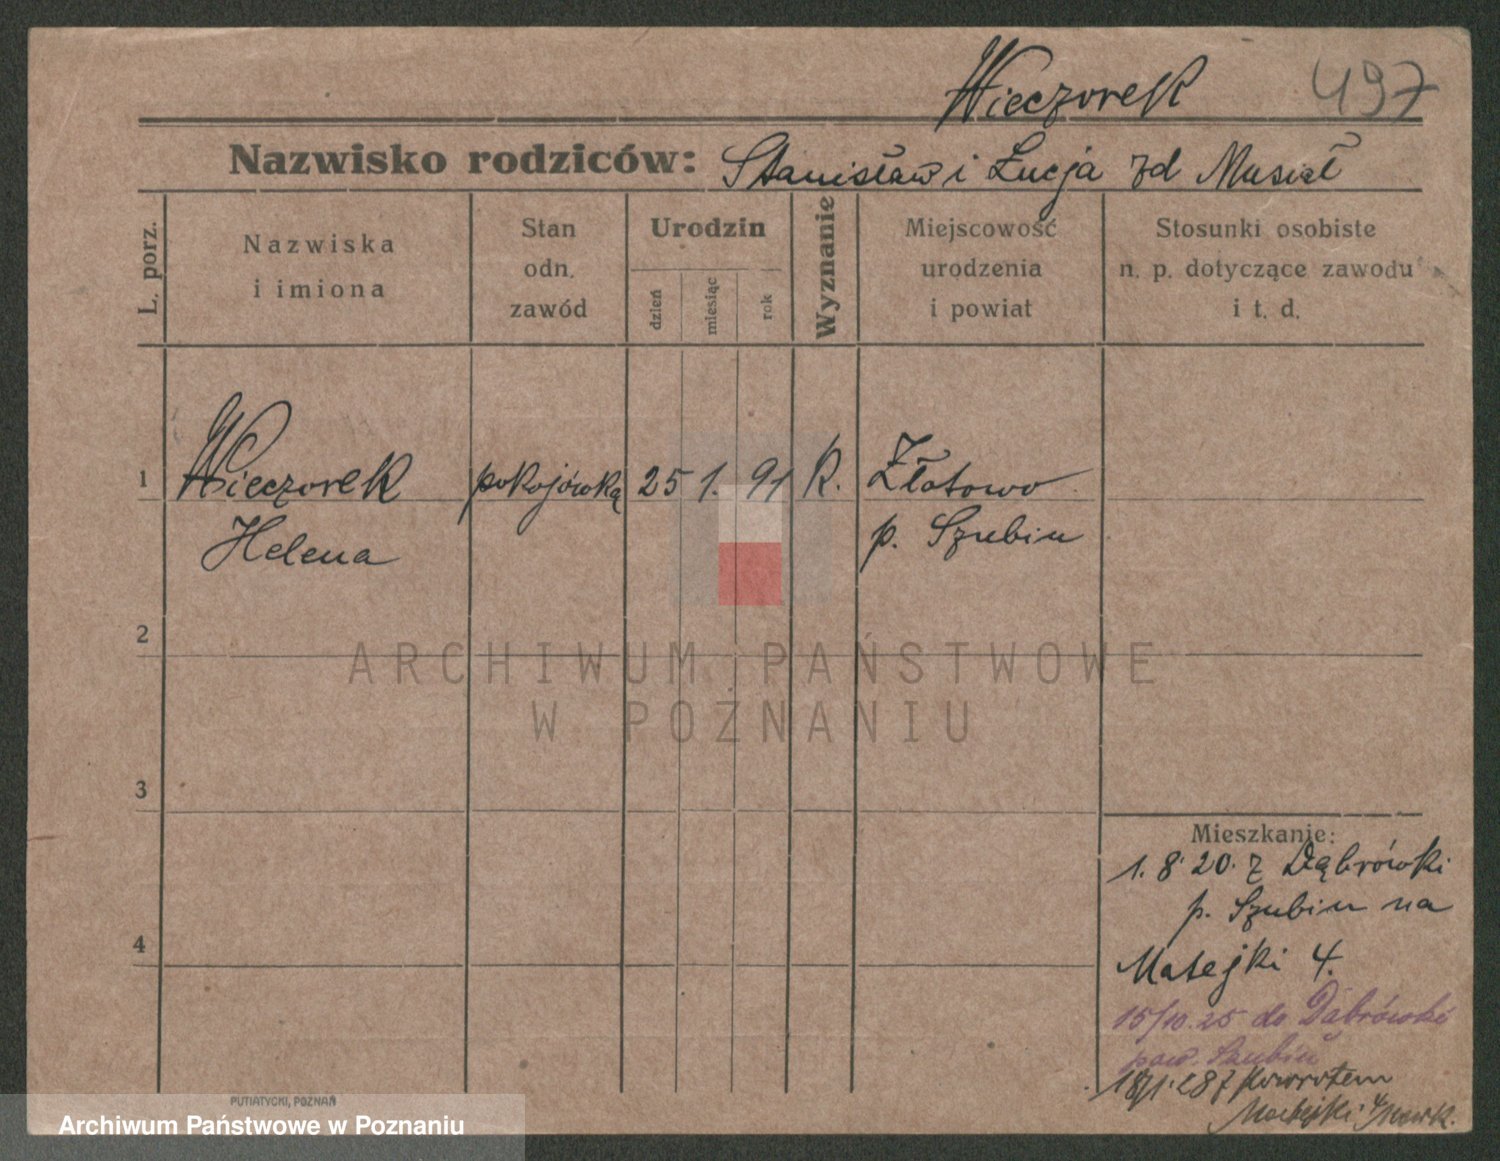 Wieczorek 497
Nazwisko rodziców: Stanisław i Łucja zd Musiał
L. porz.
Nazwiska
i imiona
Stan
odn.
zawód
Urodzin
dzień
miesiąc
rok
Wyznanie
Miejscowość
urodzenia
i powiat
Stosunki osobiste
n. p. dotyczące zawodu
i t. d.
1 Wieczorek pokojówką 25 1. 91 R. Złotowo
Helena p. Szubin
2
3
4
ARCHIWUM PAŃSTWOWE
W POZNANIU
Mieszkanie:
1. 8. 20. z Dąbrówki
p. Szubin na
Matejki 4.
15/10.25 do Dąbrówki
pow. Szubin
powrotem
Matejki 4
PUTIATYCKI, POZNAŃ
Archiwum Państwowe w Poznaniu